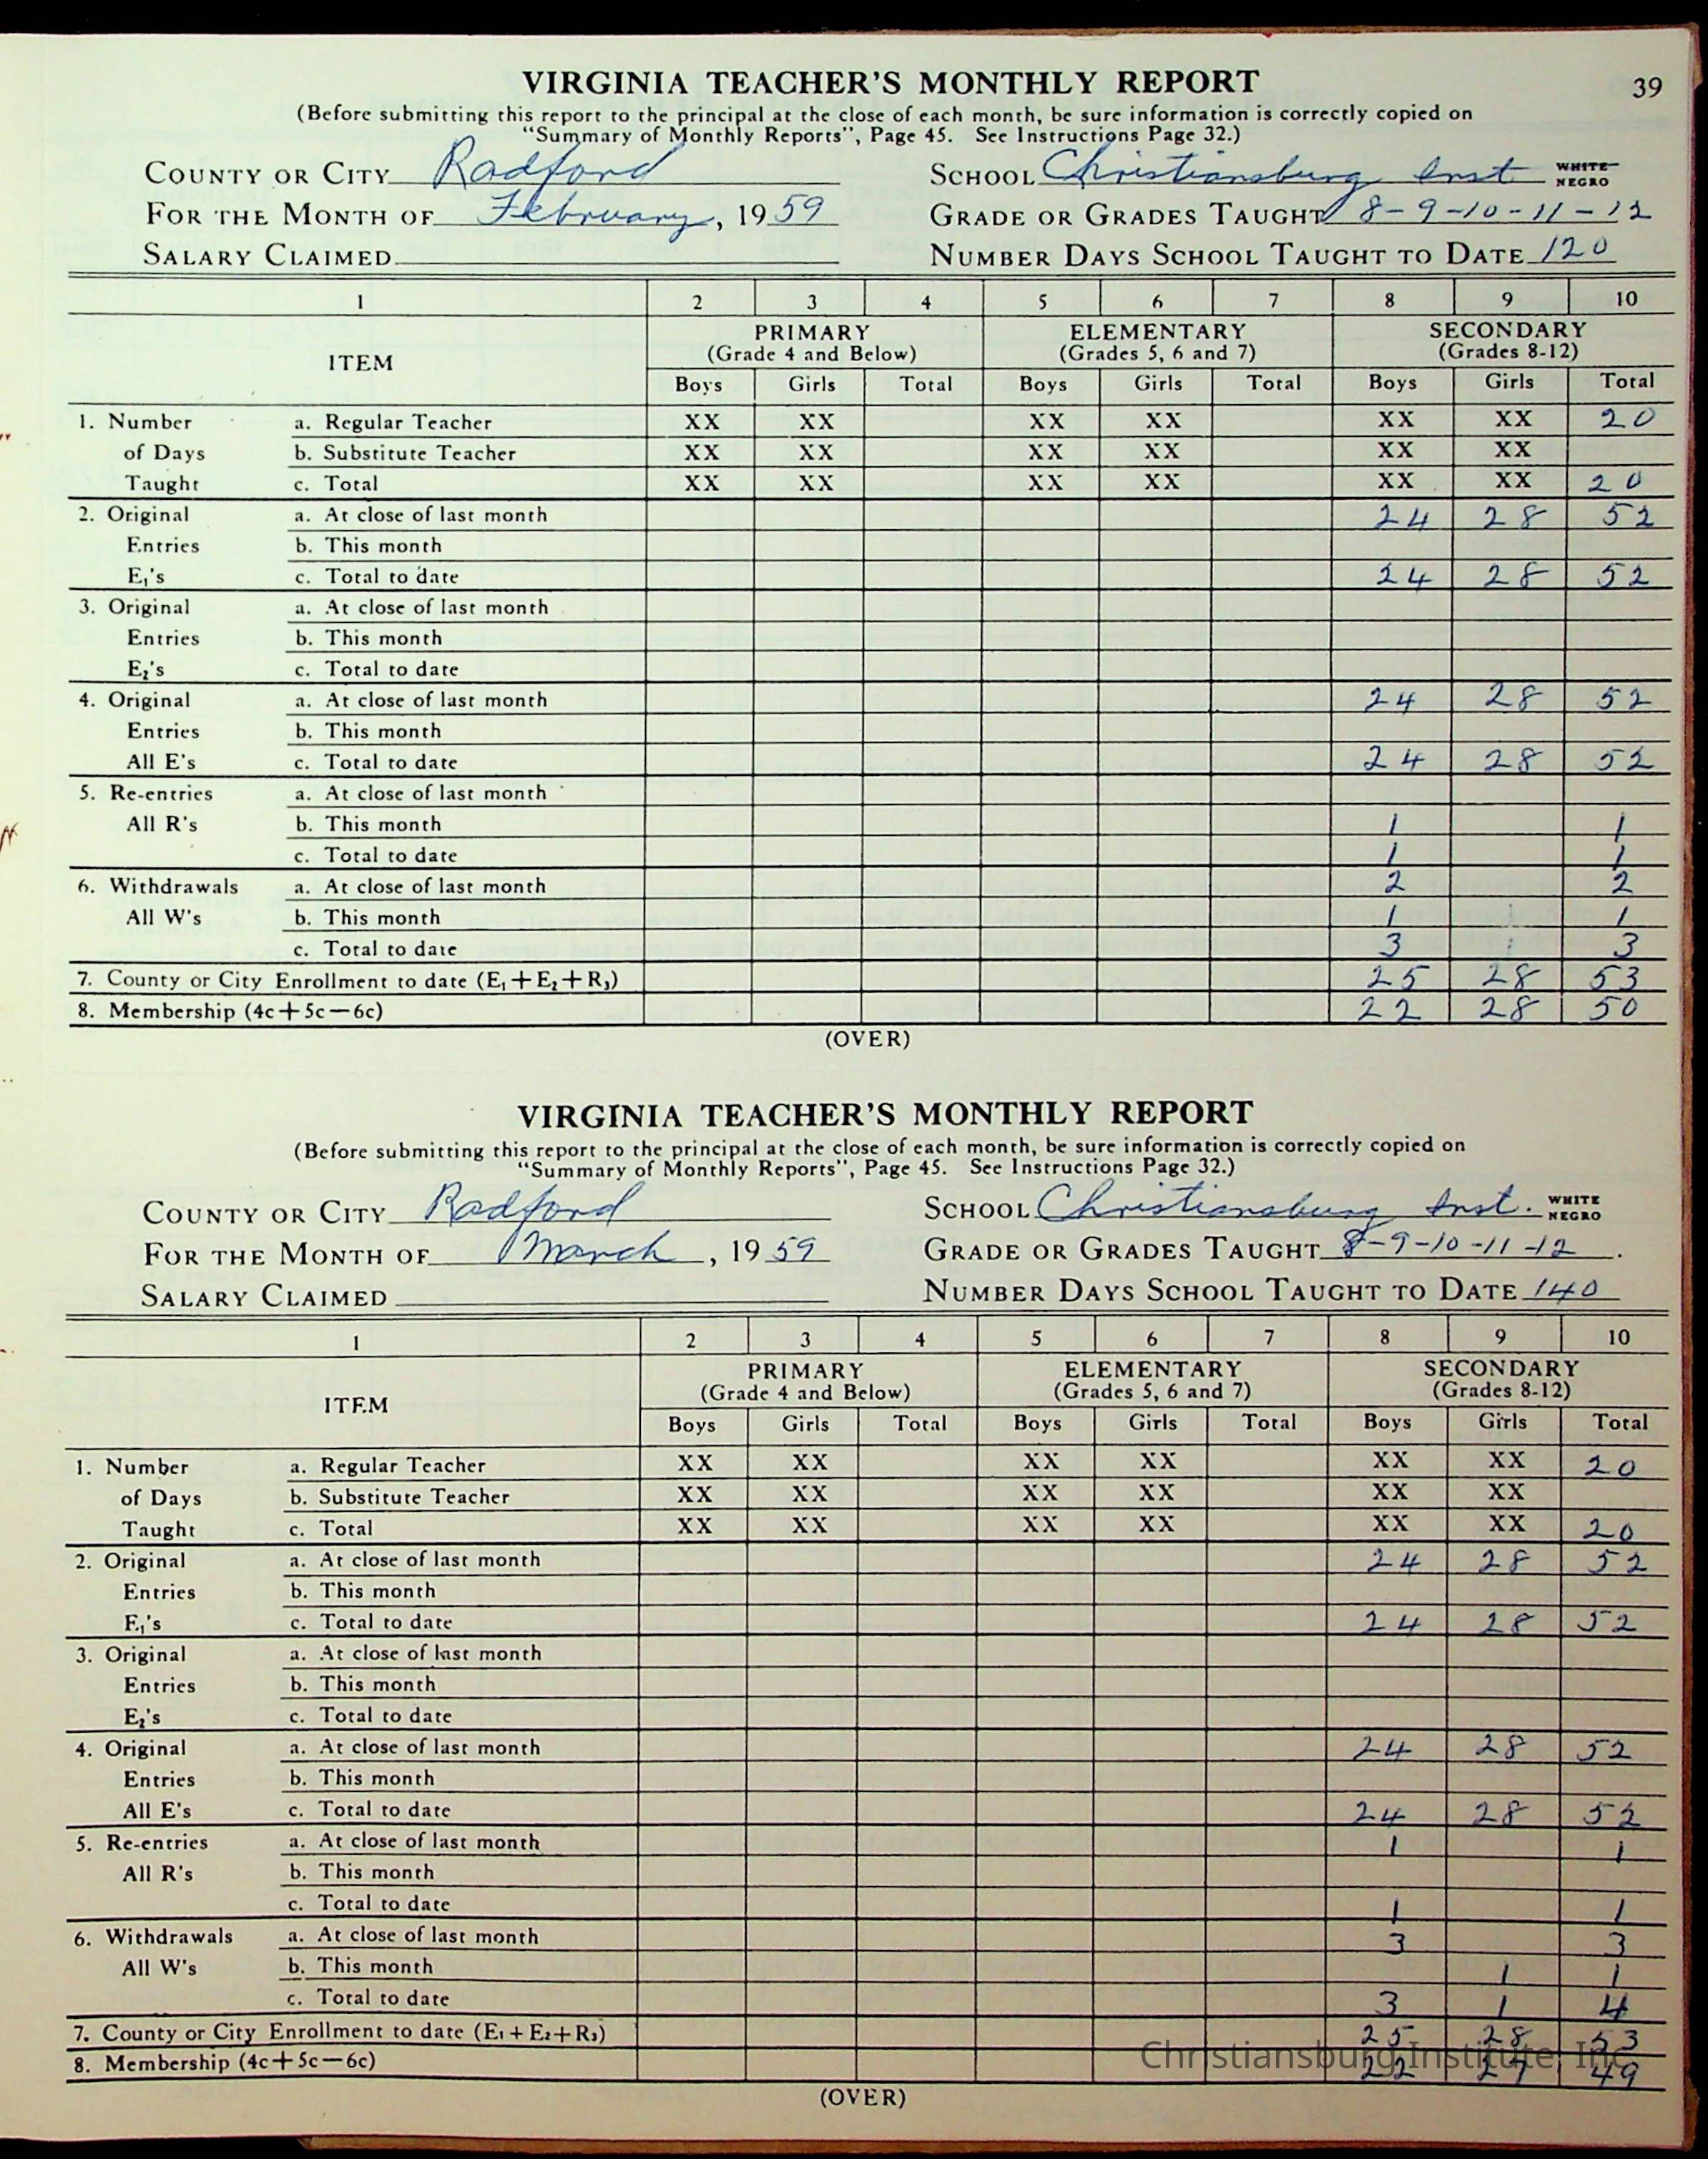 39
VIRGINIA TEACHER'S MONTHLY REPORT
(Before submitting this report to the principal at the close of each month, be sure information is correctly copied on
"Summary of Monthly Reports", Page 45. See Instructions Page 32.)
COUNTY OR CITY Radford SCHOOL Christiansburg Inst WHITE NEGRO
FOR THE MONTH OF February, 1959 GRADE OR GRADES TAUGHT 8-9-10-11-12
SALARY CLAIMED NUMBER DAYS SCHOOL TAUGHT TO DATE 120
1 2 3 4 5 6 7 8 9 10
ITEM PRIMARY ELEMENTARY SECONDARY
(Grade 4 and Below) (Grades 5, 6 and 7) (Grades 8-12)
Boys Girls Total Boys Girls Total Boys Girls Total
1. Number a. Regular Teacher XX XX XX XX XX XX 20
of Days b. Substitute Teacher XX XX XX XX XX XX
Taught c. Total XX XX XX XX XX XX 20
2. Original a. At close of last month 24 28 52
Entries b. This month
E₁'s c. Total to date 24 28 52
3. Original a. At close of last month
Entries b. This month
E₂'s c. Total to date
4. Original a. At close of last month 24 28 52
Entries b. This month
All E's c. Total to date 24 28 52
5. Re-entries a. At close of last month
All R's b. This month 1 1
c. Total to date 1 1
6. Withdrawals a. At close of last month 2 2
All W's b. This month 1 1
c. Total to date 3 3
7. County or City Enrollment to date (E₁+E₂+R₃) 25 28 53
8. Membership (4c+5c—6c) 22 28 50
(OVER)
VIRGINIA TEACHER'S MONTHLY REPORT
(Before submitting this report to the principal at the close of each month, be sure information is correctly copied on
"Summary of Monthly Reports", Page 45. See Instructions Page 32.)
COUNTY OR CITY Radford SCHOOL Christiansburg Inst. WHITE NEGRO
FOR THE MONTH OF March, 1959 GRADE OR GRADES TAUGHT 8-9-10-11-12
SALARY CLAIMED NUMBER DAYS SCHOOL TAUGHT TO DATE 140
1 2 3 4 5 6 7 8 9 10
ITEM PRIMARY ELEMENTARY SECONDARY
(Grade 4 and Below) (Grades 5, 6 and 7) (Grades 8-12)
Boys Girls Total Boys Girls Total Boys Girls Total
1. Number a. Regular Teacher XX XX XX XX XX XX 20
of Days b. Substitute Teacher XX XX XX XX XX XX
Taught c. Total XX XX XX XX XX XX 20
2. Original a. At close of last month 24 28 52
Entries b. This month
E₁'s c. Total to date 24 28 52
3. Original a. At close of last month
Entries b. This month
E₂'s c. Total to date
4. Original a. At close of last month 24 28 52
Entries b. This month
All E's c. Total to date 24 28 52
5. Re-entries a. At close of last month 1 1
All R's b. This month
c. Total to date 1 1
6. Withdrawals a. At close of last month 3 3
All W's b. This month 1 1
c. Total to date 3 1 4
7. County or City Enrollment to date (E₁+E₂+R₃) 25 28 53
8. Membership (4c+5c—6c) 22 27 49
Christiansburg Institute, Inc
(OVER)